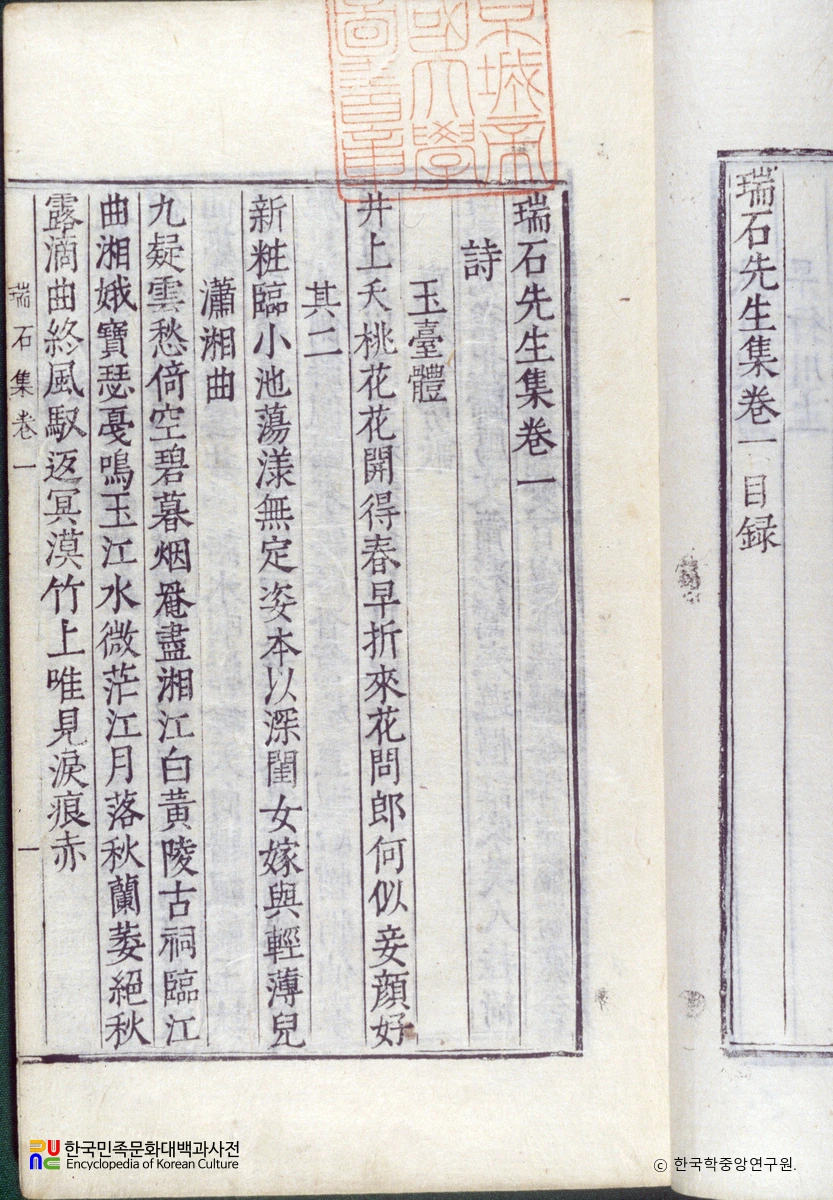 瑞石先生集卷一 目録
京城帝
國大學
圖書章
瑞石先生集卷一
詩
玉臺體
井上夭桃花花開得春早折來花問郎何似妾顔好
其二
新粧臨小池蕩漾無定姿本以深閨女嫁與輕薄兒
瀟湘曲
九疑雲愁倚空碧暮烟罨盡湘江白黃陵古祠臨江
曲湘娥寶瑟戞鳴玉江水微茫江月落秋蘭萎絕秋
露滴曲終風馭返冥漠竹上唯見淚痕赤
瑞石集卷一
一
한국민족문화대백과사전
Encyclopedia of Korean Culture
ⓒ 한국학중앙연구원.